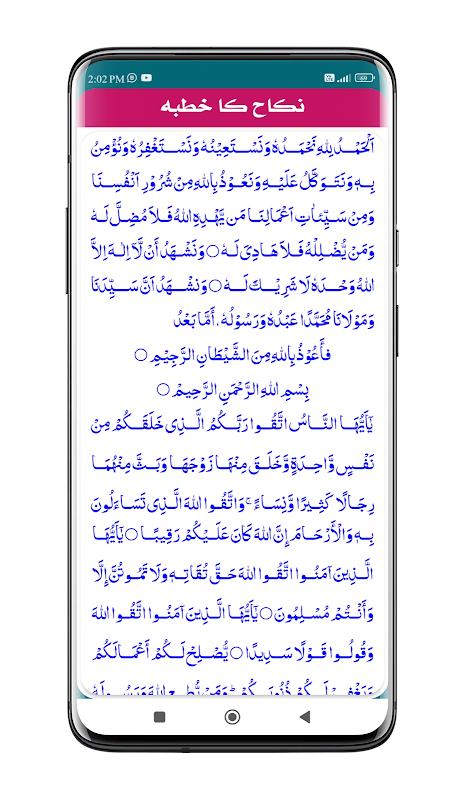 2:02 PM
نکاح کا خطبہ
اَلْحَمْدُ لِلّٰهِ نَحْمَدُهٗ وَنَسْتَعِيْنُهٗ وَنَسْتَغْفِرُهٗ وَنُؤْمِنُ
بِهٖ وَنَتَوَكَّلُ عَلَيْهِ وَنَعُوْذُ بِاللّٰهِ مِنْ شُرُوْرِ اَنْفُسِنَا
وَمِنْ سَيِّئَاتِ اَعْمَالِنَا مَن يَّهْدِهِ اللّٰهُ فَلَا مُضِلَّ لَهٗ
وَمَنْ يُّضْلِلْهُ فَلَا هَادِىَ لَهٗ ○ وَنَشْهَدُ أَنْ لَّآ اِلٰهَ اِلَّا
اللّٰهُ وَحْدَهٗ لَا شَرِيْكَ لَهٗ ○ وَنَشْهَدُ اَنَّ سَيِّدَنَا
وَمَوْلَانَا مُحَمَّدًا عَبْدُهٗ وَرَسُوْلُهٗ، أَمَّا بَعْدُ
فَأَعُوْذُ بِاللّٰهِ مِنَ الشَّيْطَانِ الرَّجِيْمِ ○
بِسْمِ اللّٰهِ الرَّحْمٰنِ الرَّحِيْمِ ○
يٰٓأَيُّهَا النَّاسُ اتَّقُوْا رَبَّكُمُ الَّذِىْ خَلَقَكُمْ مِنْ
نَفْسٍ وَّاحِدَةٍ وَّخَلَقَ مِنْهَا زَوْجَهَا وَبَثَّ مِنْهُمَا
رِجَالًا كَثِيْرًا وَّنِسَاءً ۚ وَاتَّقُوا اللّٰهَ الَّذِىْ تَسَاءَلُوْنَ
بِهٖ وَالْأَرْحَامَ إِنَّ اللّٰهَ كَانَ عَلَيْكُمْ رَقِيْبًا ○ يٰٓأَيُّهَا
الَّذِيْنَ آمَنُوا اتَّقُوا اللّٰهَ حَقَّ تُقَاتِهٖ وَلَا تَمُوْتُنَّ إِلَّا
وَأَنْتُمْ مُسْلِمُوْنَ ○ يٰٓأَيُّهَا الَّذِيْنَ آمَنُوا اتَّقُوا اللّٰهَ
وَقُوْلُوْا قَوْلًا سَدِيْدًا ○ يُّصْلِحْ لَكُمْ أَعْمَالَكُمْ
وَيَغْفِرْ لَكُمْ ذُنُوْبَكُمْ ؕ وَمَنْ يُّطِعِ اللّٰهَ وَرَسُوْلَهٗ